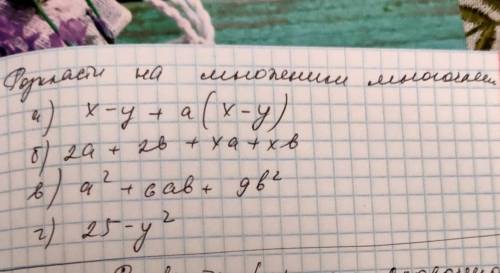 Розкласти на множники многочлен
а) x-y + a(x-y)
б) 2a + 2b + xa + xb
в) a² + 6ab + 9b²
г) 25 - y²